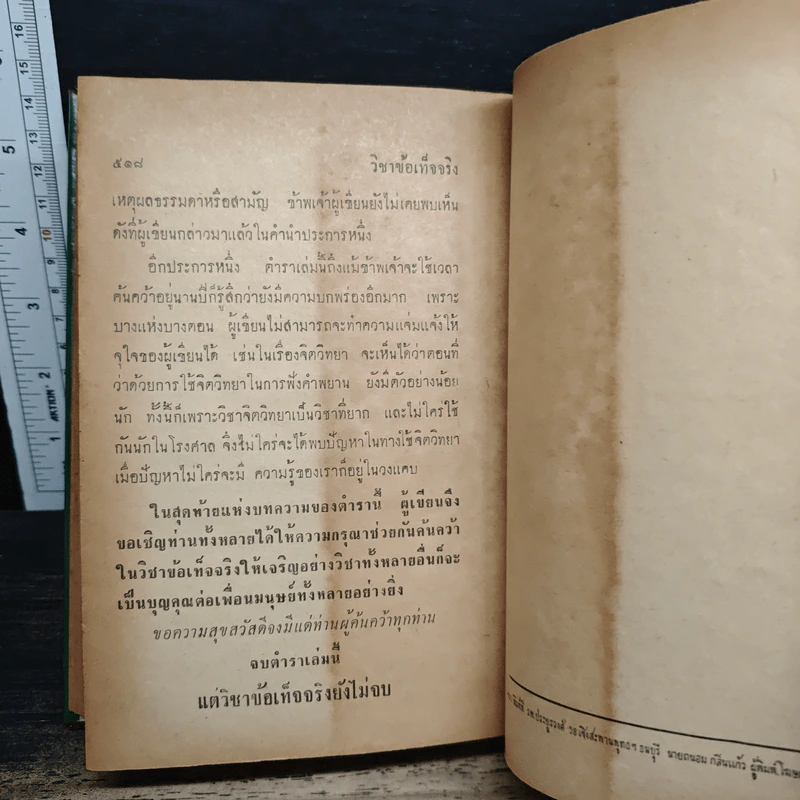 ๕๑๘ วิชาข้อเท็จจริง
เหตุผลธรรมดาหรือสามัญ ข้าพเจ้าผู้เขียนยังไม่เคยพบเห็น
ดังที่ผู้เขียนกล่าวมาแล้วในคำนำประการหนึ่ง
อีกประการหนึ่ง ตำราเล่มนี้ถึงแม้ข้าพเจ้าจะใช้เวลา
ค้นคว้าอยู่นานปีก็รู้สึกว่ายังมีความบกพร่องอีกมาก เพราะ
บางแห่งบางตอน ผู้เขียนไม่สามารถจะทำความแจ่มแจ้งให้
จุใจของผู้เขียนได้ เช่นในเรื่องจิตวิทยา จะเห็นได้ว่าตอนที่
ว่าด้วยการใช้จิตวิทยาในการฟังคำพยาน ยังมีตัวอย่างน้อย
นัก ทั้งนี้ก็เพราะวิชาจิตวิทยาเป็นวิชาที่ยาก และไม่ใคร่ใช้
กันนักในโรงศาล จึงไม่ใคร่จะได้พบปัญหาในทางใช้จิตวิทยา
เมื่อปัญหาไม่ใคร่จะมี ความรู้ของเราก็อยู่ในวงแคบ
ในสุดท้ายแห่งบทความของตำรานี้ ผู้เขียนจึง
ขอเชิญท่านทั้งหลายได้ให้ความกรุณาช่วยกันค้นคว้า
ในวิชาข้อเท็จจริงให้เจริญอย่างวิชาทั้งหลายอื่นก็จะ
เป็นบุญคุณต่อเพื่อนมนุษย์ทั้งหลายอย่างยิ่ง
ขอความสุขสวัสดีจงมีแด่ท่านผู้ค้นคว้าทุกท่าน
จบตำราเล่มนี้
แต่วิชาข้อเท็จจริงยังไม่จบ
ธนบุรี นายถนอม กลิ่นแก้ว ผู้พิมพ์โฆษ
16
15
14
13
12
11
10
9
8
7
6
5
4
3
2
1
5
4
3
2
1